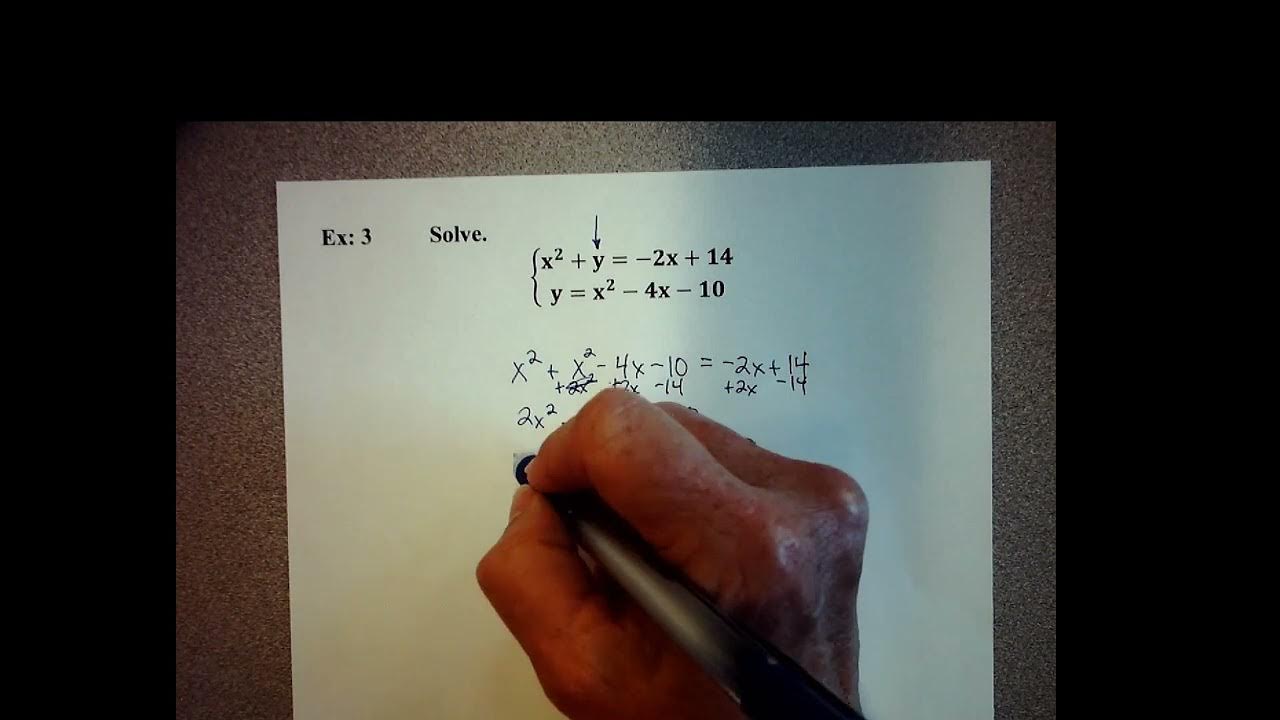 Ex: 3 Solve.
x² + y = −2x + 14
y = x² − 4x − 10
x² + x² - 4x - 10 = -2x + 14
+2x -14 +2x -14
2x²